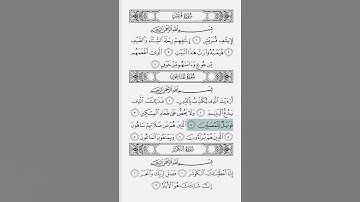 سُورَةُ قُرَيْشٍ
بِسْمِ اللَّهِ الرَّحْمَٰنِ الرَّحِيمِ
لِإِيلَٰفِ قُرَيْشٍ ١ إِۦلَٰفِهِمْ رِحْلَةَ الشِّتَاءِ وَالصَّيْفِ
٢ فَلْيَعْبُدُوا رَبَّ هَٰذَا الْبَيْتِ ٣ الَّذِي أَطْعَمَهُم
مِّن جُوعٍ وَءَامَنَهُم مِّنْ خَوْفٍ ٤
سُورَةُ الْمَاعُونِ
بِسْمِ اللَّهِ الرَّحْمَٰنِ الرَّحِيمِ
أَرَءَيْتَ الَّذِي يُكَذِّبُ بِالدِّينِ ١ فَذَٰلِكَ الَّذِي
يَدُعُّ الْيَتِيمَ ٢ وَلَا يَحُضُّ عَلَىٰ طَعَامِ الْمِسْكِينِ ٣
فَوَيْلٌ لِّلْمُصَلِّينَ ٤ الَّذِينَ هُمْ عَن صَلَاتِهِمْ سَاهُونَ
٥ الَّذِينَ هُمْ يُرَاءُونَ ٦ وَيَمْنَعُونَ الْمَاعُونَ ٧
سُورَةُ الْكَوْثَرِ
بِسْمِ اللَّهِ الرَّحْمَٰنِ الرَّحِيمِ
إِنَّا أَعْطَيْنَٰكَ الْكَوْثَرَ ١ فَصَلِّ لِرَبِّكَ وَانْحَرْ ٢
إِنَّ شَانِئَكَ هُوَ الْأَبْتَرُ ٣